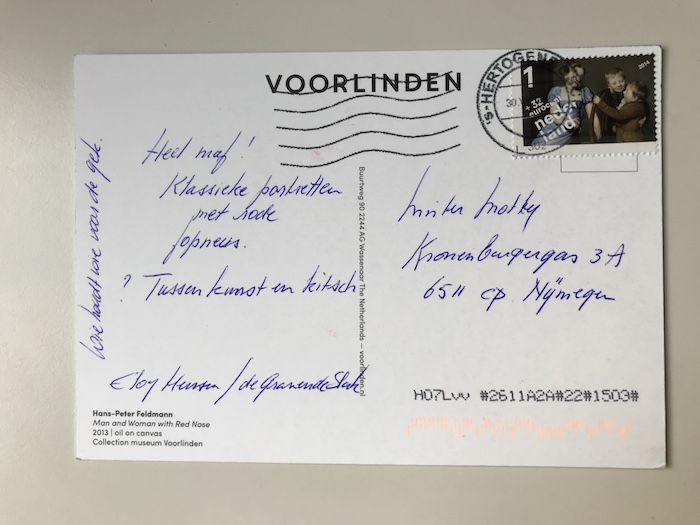 VOORLINDEN
's-HERTOGEN
30
L 302
1
2014
+ 32
eurocent
neder
land
Heel maf!
Klassieke portretten
met rode
fopneus.
? Tussen kunst en kitsch
Wie houdt wie voor de gek.
Buurtweg 90 2244 AG Wassenaar The Netherlands – voorlinden.nl
Kronenburgergas 3A
6511 CP Nijmegen
H07Lvv #2611A2A#22#1503#
Hans-Peter Feldmann
Man and Woman with Red Nose
2013 | oil on canvas
Collection museum Voorlinden